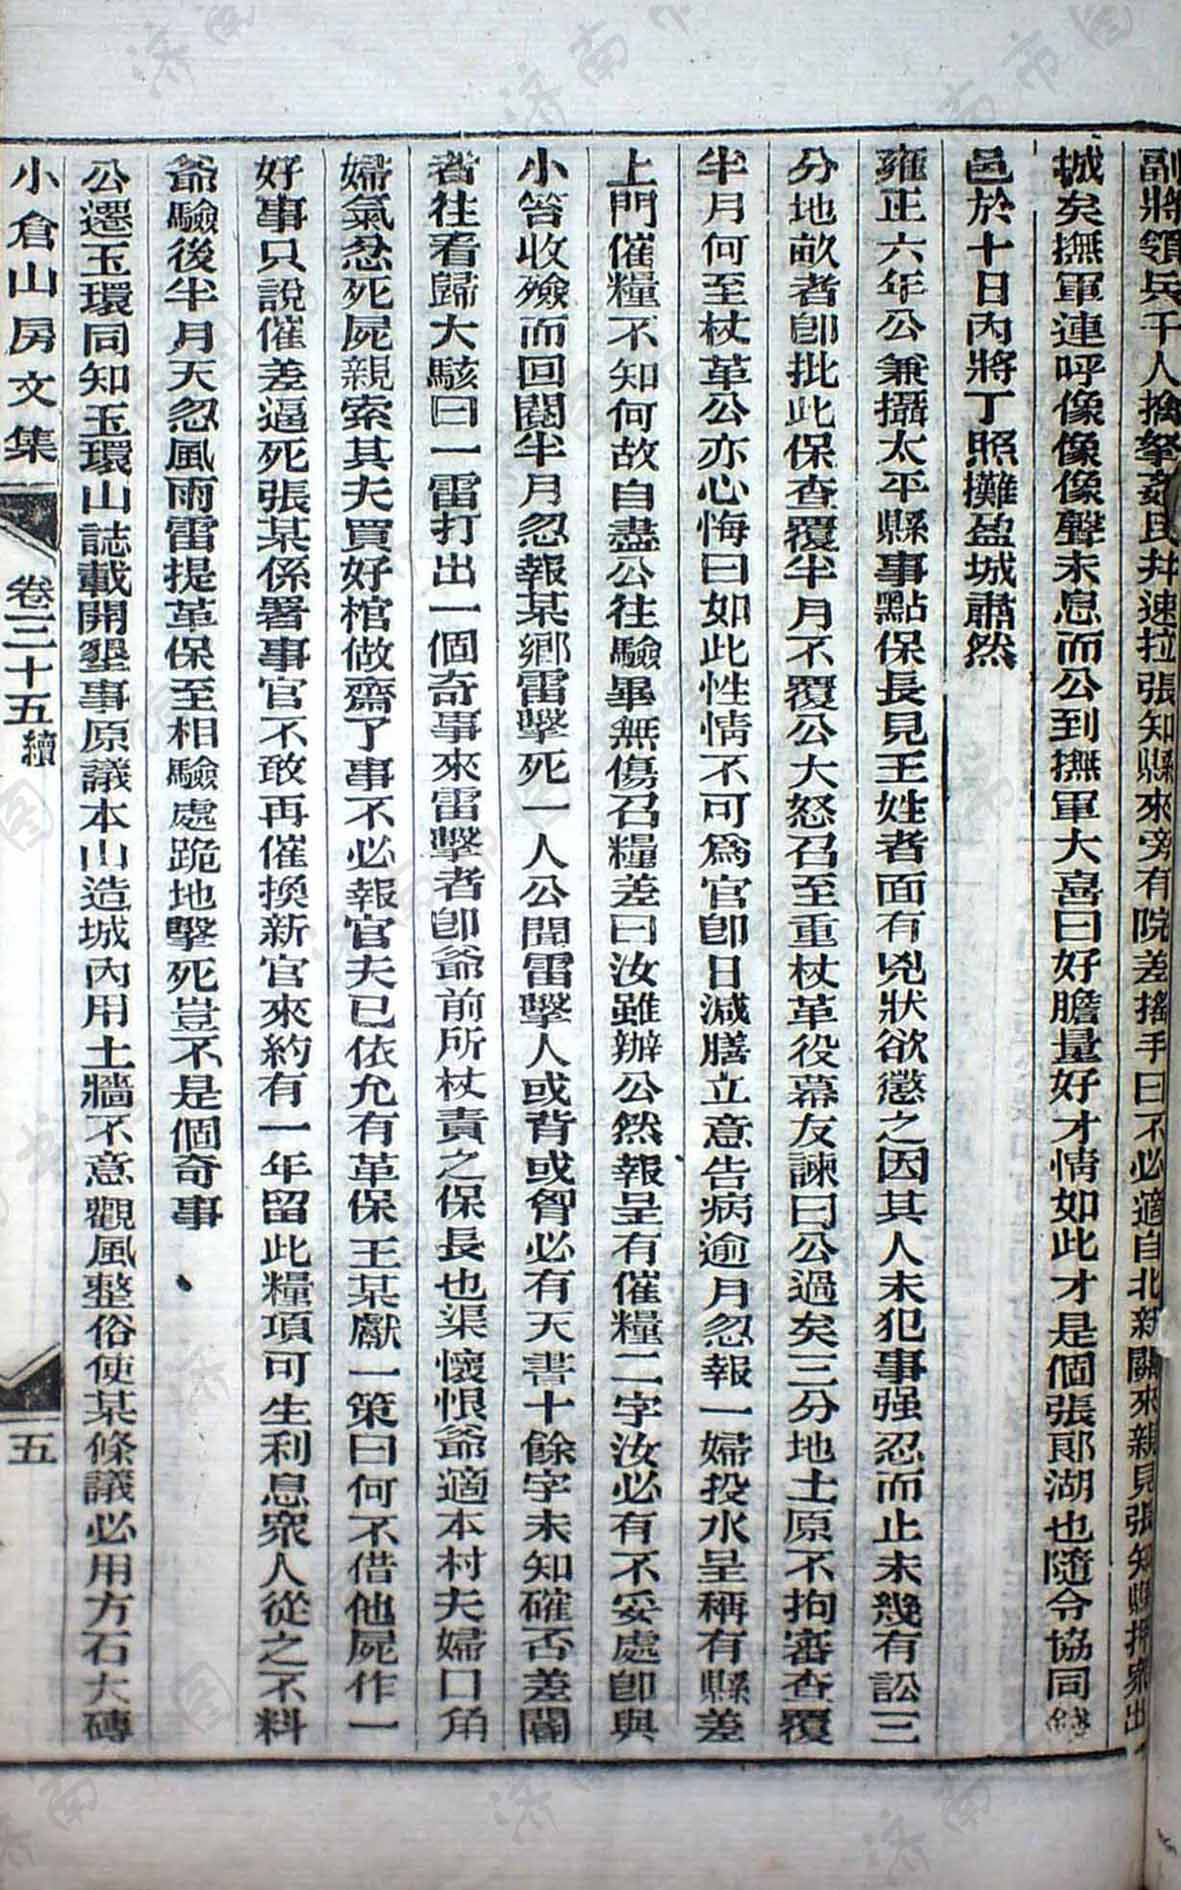 副將領兵千人擒拏姦民幷速拉張知縣來旁有院差搖手曰不必適自北新關來親見張知縣押衆出
城矣撫軍連呼像像像聲未息而公到撫軍大喜曰好膽量好才情如此才是個張郎湖也隨令協同錢
邑於十日內將丁照攤盈城肅然
雍正六年公兼攝太平縣事點保長見王姓者面有兇狀欲懲之因其人未犯事强忍而止未幾有訟三
分地畝者卽批此保查覆半月不覆公大怒召至重杖革役幕友諫曰公過矣三分地土原不拘審查覆
半月何至杖革公亦心悔曰如此性情不可爲官卽日減膳立意告病逾月忽報一婦投水呈稱有縣差
上門催糧不知何故自盡公往驗畢無傷召糧差曰汝雖辦公然報呈有催糧二字汝必有不妥處卽與
小笞收殮而回閱半月忽報某鄉雷擊死一人公聞雷擊人或背或胷必有天書十餘字未知確否差閽
者往看歸大駭曰一雷打出一個奇事來雷擊者卽爺前所杖責之保長也渠懷恨爺適本村夫婦口角
婦氣忿死屍親索其夫買好棺做齋了事不必報官夫已依允有革保王某獻一策曰何不借他屍作一
好事只說催差逼死張某係署事官不敢再催換新官來約有一年留此糧項可生利息衆人從之不料
爺驗後半月天忽風雨雷提革保至相驗處跪地擊死豈不是個奇事
公遷玉環同知玉環山誌載開墾事原議本山造城內用土牆不意觀風整俗使某條議必用方石大磚
小倉山房文集
卷三十五續
五
济南
济南市图